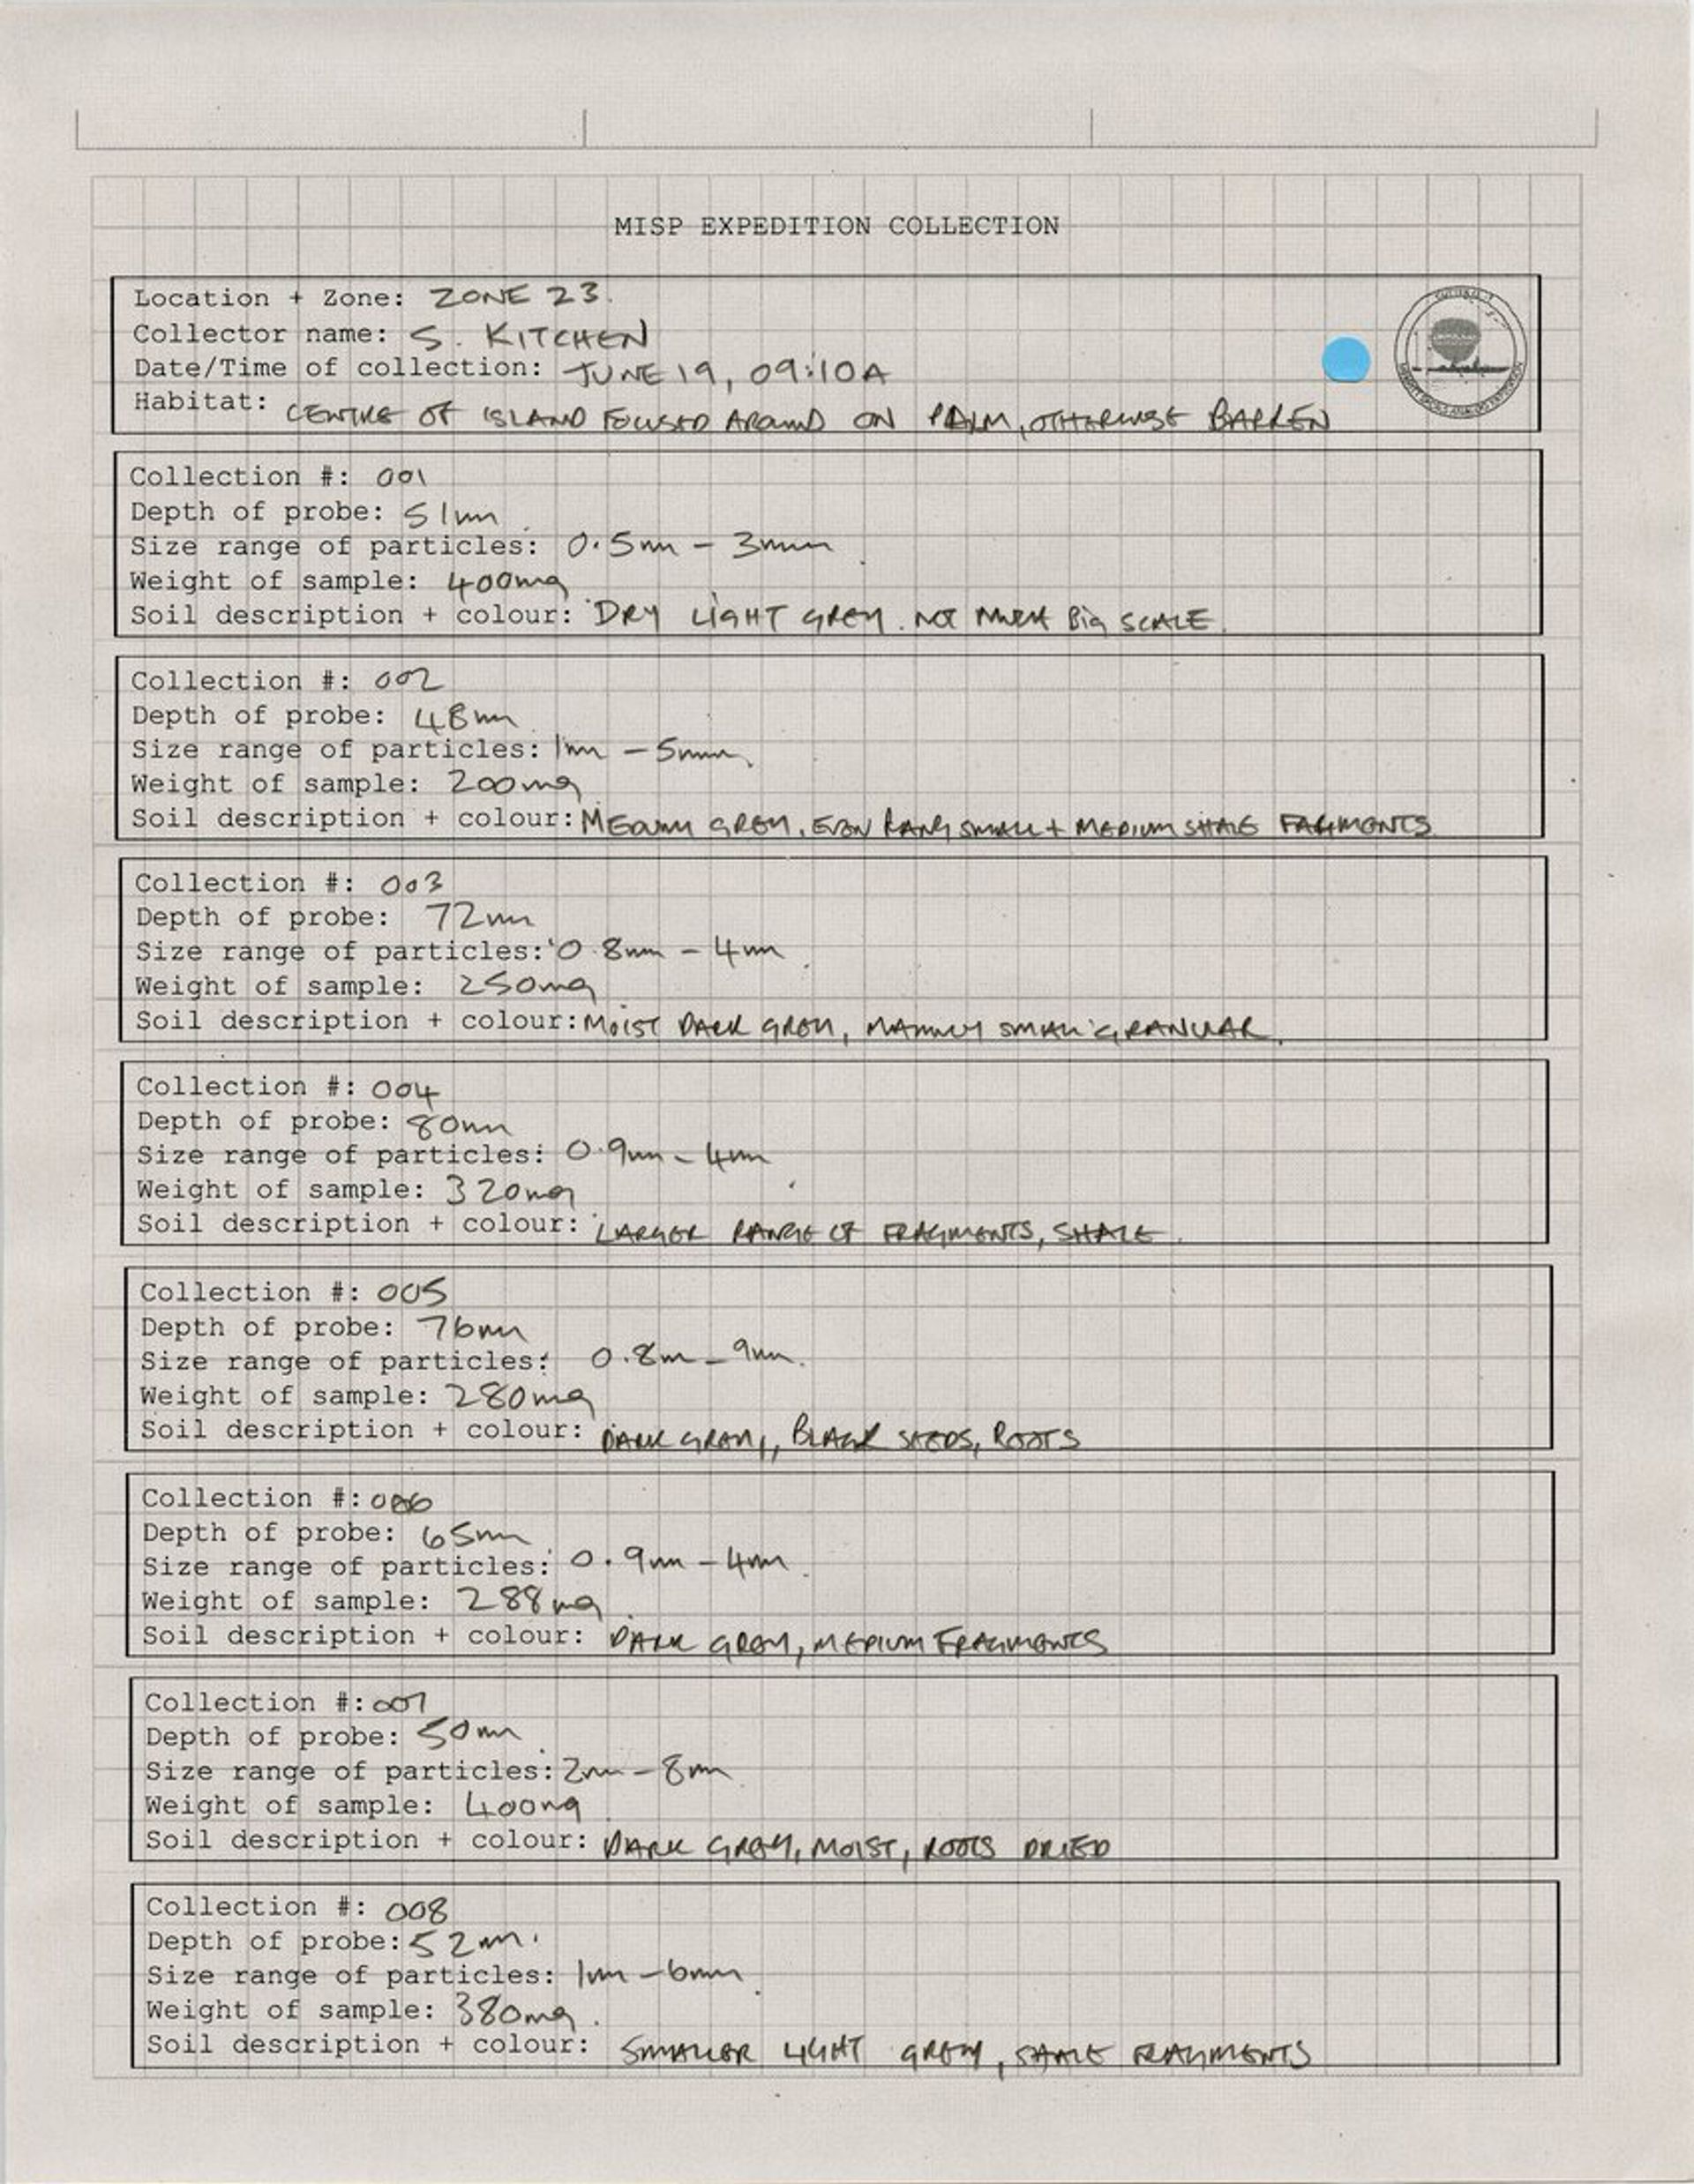 MISP EXPEDITION COLLECTION
Location + Zone: ZONE 23.
Collector name: S. KITCHEN
Date/Time of collection: JUNE 19, 09:10A
Habitat: CENTRE OF ISLAND FOCUSED AROUND ON PALM, OTHERWISE BARREN
Collection #: 001
Depth of probe: 51mm
Size range of particles: 0.5mm - 3mm
Weight of sample: 400mg
Soil description + colour: DRY LIGHT GREY. NOT MUCH BIG SCALE
Collection #: 002
Depth of probe: 48mm
Size range of particles: 1mm - 5mm
Weight of sample: 200mg
Soil description + colour: MEDIUM GREY, EVEN RANG SMALL + MEDIUM SHALE FAGMENTS
Collection #: 003
Depth of probe: 72mm
Size range of particles: 0.8mm - 4mm
Weight of sample: 250mg
Soil description + colour: MOIST DARK GREY, MAINLY SMALL GRANULAR
Collection #: 004
Depth of probe: 80mm
Size range of particles: 0.9mm - 4mm
Weight of sample: 320mg
Soil description + colour: LARGER RANGE OF FRAGMENTS, SHALE
Collection #: 005
Depth of probe: 76mm
Size range of particles: 0.8m - 9mm.
Weight of sample: 280mg
Soil description + colour: DARK GREY, BLACK SEEDS, ROOTS
Collection #: 006
Depth of probe: 65mm
Size range of particles: 0.9mm - 4mm
Weight of sample: 288mg
Soil description + colour: DARK GREY, MEDIUM FRAGMENTS
Collection #: 007
Depth of probe: 50mm
Size range of particles: 2mm - 8mm
Weight of sample: 400mg
Soil description + colour: DARK GREY, MOIST, ROOTS DRIED
Collection #: 008
Depth of probe: 52mm.
Size range of particles: 1mm - 6mm
Weight of sample: 380mg.
Soil description + colour: SMALLER LIGHT GREY, SHALE FRAGMENTS